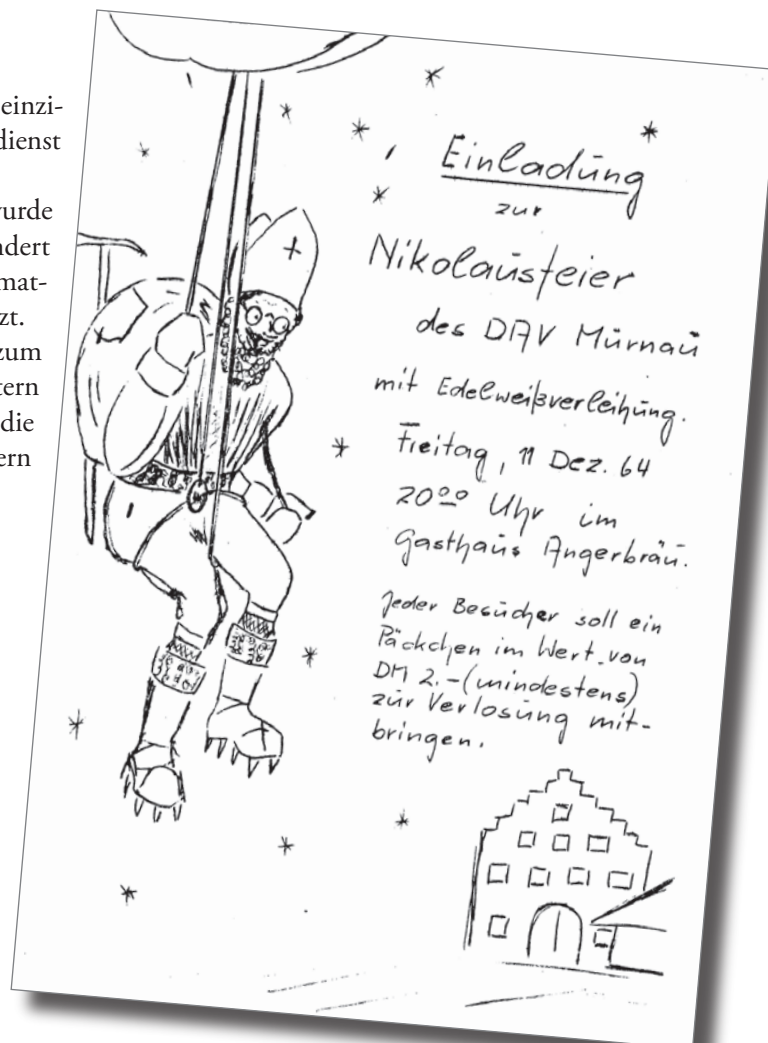 einzi-
dienst
wurde
ndert
mat-
zt.
zum
tern
die
ern
Einladung
zur
Nikolausfeier
des DAV Murnau
mit Edelweißverleihung.
Freitag, 11 Dez. 64
20⁰⁰ Uhr im
Gasthaus Angerbräu.
Jeder Besucher soll ein
Päckchen im Wert von
DM 2.-(mindestens)
zur Verlosung mit-
bringen.